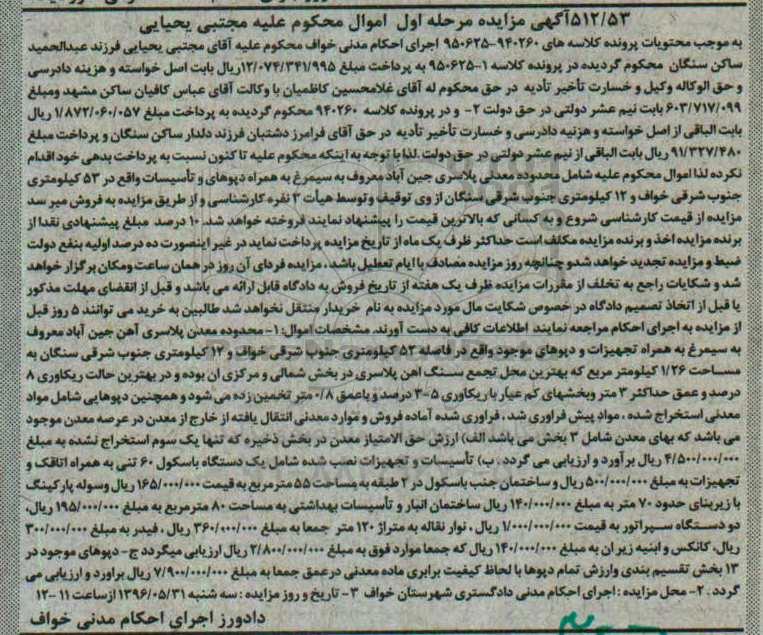 ۵۱۲/۵۳آگهی مزایده مرحله اول اموال محکوم علیه مجتبی یحیایی
به موجب محتویات پرونده کلاسه های ۹۴۰۲۶۰-۹۵۰۶۲۵ اجرای احکام مدنی خواف محکوم علیه آقای مجتبی یحیایی فرزند عبدالحمید
ساکن سنگان محکوم گردیده در پرونده کلاسه ۱-۹۵۰۶۲۵ به پرداخت مبلغ ۱۲/۰۷۴/۳۴۱/۹۹۵ریال بابت اصل خواسته و هزینه دادرسی
و حق الوکاله وکیل و خسارت تأخیر تأدیه در حق محکوم له آقای غلامحسین کاظمیان با وکالت آقای عباس کافیان ساکن مشهد ومبلغ
۶۰۳/۷۱۷/۰۹۹ بابت نیم عشر دولتی در حق دولت ۲- و در پرونده کلاسه ۹۴۰۲۶۰ محکوم گردیده به پرداخت مبلغ ۱/۸۷۲/۰۶۰/۰۵۷ ریال
بابت الباقی از اصل خواسته و هزنیه دادرسی و خسارت تأخیر تأدیه در حق آقای فرامرز دشتبان فرزند دلدار ساکن سنگان و پرداخت مبلغ
۹۱/۳۲۷/۴۸۰ ریال بابت الباقی از نیم عشر دولتی در حق دولت .لذا با توجه به اینکه محکوم علیه تا کنون نسبت به پرداخت بدهی خود اقدام
نکرده لذا اموال محکوم علیه شامل محدوده معدنی پلاسری جین آباد معروف به سیمرغ به همراه دپوهای و تأسیسات واقع در ۵۳ کیلومتری
جنوب شرقی خواف و ۱۲ کیلومتری جنوب شرقی سنگان از وی توقیف و توسط هیأت ۳ نفره کارشناسی و از طریق مزایده به فروش میر سد
مزایده از قیمت کارشناسی شروع و به کسانی که بالاترین قیمت را پیشنهاد نمایند فروخته خواهد شد. ۱۰ درصد مبلغ پیشنهادی نقدا از
برنده مزایده اخذ و برنده مزایده مکلف است حداکثر ظرف یک ماه از تاریخ مزایده پرداخت نماید در غیر اینصورت ده درصد اولیه بنفع دولت
ضبط و مزایده تجدید خواهد شدو چنانچه روز مزایده مصادف با ایام تعطیل باشد ، مزایده فردای آن روز در همان ساعت ومکان برگزار خواهد
شد و شکایات راجع به تخلف از مقررات مزایده ظرف یک هفته از تاریخ فروش به دادگاه قابل ارائه می باشد و قبل از انقضای مهلت مذکور
یا قبل از اتخاذ تصمیم دادگاه در خصوص شکایت مال مورد مزایده به نام خریدار منتقل نخواهد شد طالبین به خرید می توانند ۵ روز قبل
از مزایده به اجرای احکام مراجعه نمایند اطلاعات کافی به دست آورند. مشخصات اموال: ۱- محدوده معدن پلاسری آهن جین آباد معروف
به سیمرغ به همراه تجهیزات و دپوهای موجود واقع در فاصله ۵۳ کیلومتری جنوب شرقی خواف و ۱۲ کیلومتری جنوب شرقی سنگان به
مساحت ۱/۲۶ کیلومتر مربع که بهترین محل تجمع سنگ اهن پلاسری در بخش شمالی و مرکزی ان بوده و در بهترین حالت ریکاوری ۸
درصد و عمق حداکثر ۳ متر وبخشهای کم عیار با ریکاوری ۵-۳ درصد و باعمق ۰/۸ متر تخمین زده می شود و همچنین دپوهایی شامل مواد
معدنی استخراج شده ، مواد پیش فراوری شد ، فراوری شده آماده فروش و موارد معدنی انتقال یافته از خارج از معدن در عرصه معدن موجود
می باشد که بهای معدن شامل ۳ بخش می باشد الف) ارزش حق الامتیاز معدن در بخش ذخیره که تنها یک سوم استخراج نشده به مبلغ
۴/۵۰۰/۰۰۰/۰۰۰ ریال بر آورد و ارزیابی می گردد . ب) تأسیسات و تجهیزات نصب شده شامل یک دستگاه باسکول ۶۰ تنی به همراه اتاقک و
تجهیزات به مبلغ ۵۰۰/۰۰۰/۰۰۰ ریال و ساختمان جنب باسکول در ۲ طبقه به مساحت ۵۵ مترمربع به قیمت ۱۶۵/۰۰۰/۰۰۰ ریال وسوله پارکینگ
با زیربنای حدود ۷۰ متر به مبلغ ۱۴۰/۰۰۰/۰۰۰ ریال ساختمان انبار و تأسیسات بهداشتی به مساحت ۸۰ مترمربع به مبلغ ۱۹۵/۰۰۰/۰۰۰ ریال،
دو دستگاه سپراتور به قیمت ۱/۰۰۰/۰۰۰/۰۰۰ ریال ، نوار نقاله به متراژ ۱۲۰ متر جمعا به مبلغ ۳۶۰/۰۰۰/۰۰۰ ریال ، فیدر به مبلغ ۳۰۰/۰۰۰/۰۰۰
ریال، کانکس و ابنیه زیر ان به مبلغ ۱۴۰/۰۰۰/۰۰۰ ریال که جمعا موارد فوق به مبلغ ۲/۸۰۰/۰۰۰/۰۰۰ ریال ارزیابی میگردد ج- دپوهای موجود در
۱۳ بخش تقسیم بندی وارزش تمام دپوها با لحاظ کیفیت برابری ماده معدنی درعمق جمعا به مبلغ ۷/۹۰۰/۰۰۰/۰۰۰ ریال براورد و ارزیابی می
گردد . ۲- محل مزایده : اجرای احکام مدنی دادگستری شهرستان خواف ۳- تاریخ و روز مزایده : سه شنبه ۱۳۹۶/۰۵/۳۱ از ساعت ۱۱-۱۲
دادورز اجرای احکام مدنی خواف